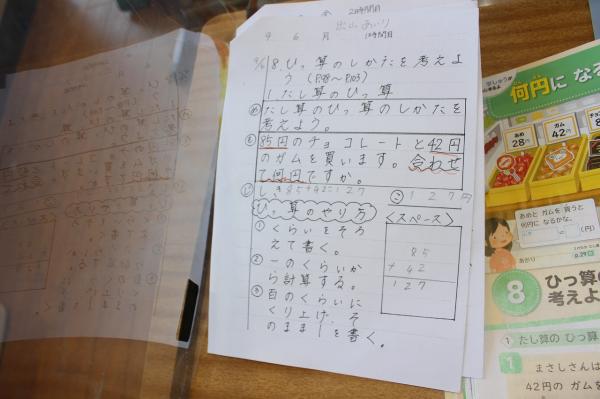 2時間目
9 6 月 1時間目
9/6 8. ひっ算のしかたを考えよ
う (P.98～P.103)
1. たし算のひっ算
め たし算のひっ算のしかたを
考えよう。
も 85円のチョコレートと42円
のガムを買います。合わせ
て何円ですか。
しき 85+42=127
こ 127円
ひっ算のやり方
＜スペース＞
① くらいをそろ
えて書く。
② 一のくらいか
ら計算する。
③ 百のくらいに
くり上げ、そ
のまま1を書く。
85
+ 42
127
何円に なる
あめ
28円
ガム
42円
あめと ガムを 買うと
何円に なるかな。
(円)
あかり
p.29
8 ひっ算の
考えよ
1 たし算の ひっ算
1 まさしさんは
42円の ガム